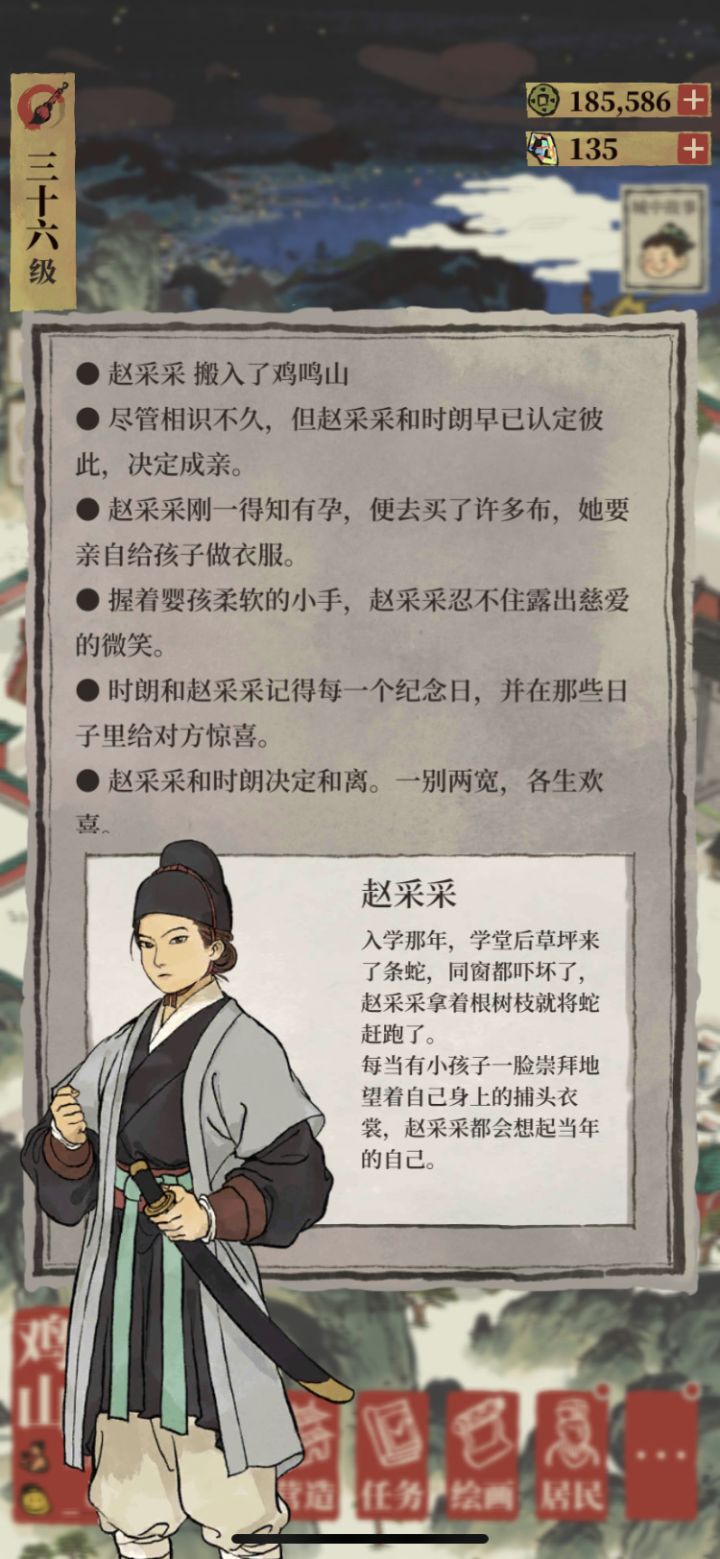 三十六级
185,586
135
● 赵采采 搬入了鸡鸣山
● 尽管相识不久，但赵采采和时朗早已认定彼
此，决定成亲。
● 赵采采刚一得知有孕，便去买了许多布，她要
亲自给孩子做衣服。
● 握着婴孩柔软的小手，赵采采忍不住露出慈爱
的微笑。
● 时朗和赵采采记得每一个纪念日，并在那些日
子里给对方惊喜。
● 赵采采和时朗决定和离。一别两宽，各生欢
喜。
赵采采
入学那年，学堂后草坪来
了条蛇，同窗都吓坏了，
赵采采拿着根树枝就将蛇
赶跑了。
每当有小孩子一脸崇拜地
望着自己身上的捕头衣
裳，赵采采都会想起当年
的自己。
鸡
山
营造
任务
绘画
居民